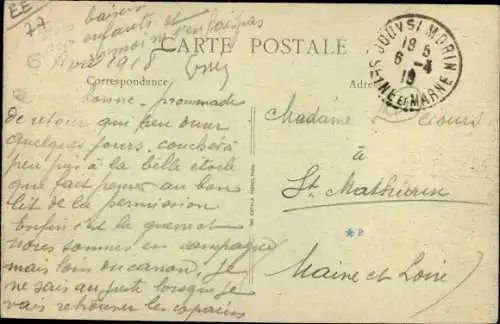 EE
77
baisers
enfants et
moi n'en fais pas
6 Avril 1918
CARTE POSTALE
Correspondance
Adresse
JOUY S/ MORIN
19 5
6 -4
18
SEINE ET MARNE
bonne promenade
de retour qui peu durer
quelques jours. couché à
peu près à la belle étoile
que faut penser au bon
lit de la permission
Enfin c'est la guerre et
nous sommes en campagne
mais loin du canon. Je
ne sais au juste lorsque je
vais retrouver les copains
Madame
à
St Mathurin
Maine et Loire